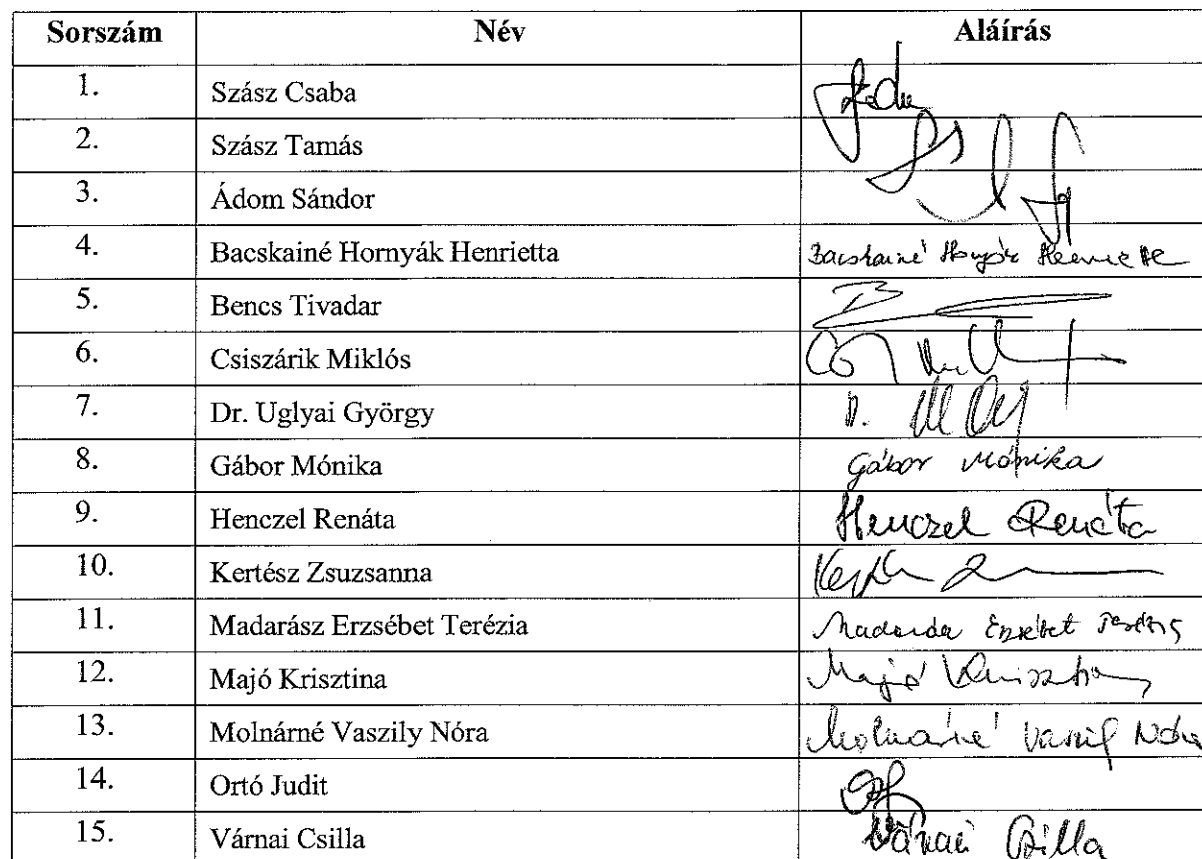 Sorszám Név Aláírás
1. Szász Csaba
2. Szász Tamás
3. Ádom Sándor
4. Bacskainé Hornyák Henrietta Bacskainé Hornyák Henrietta
5. Bencs Tivadar
6. Csiszárik Miklós
7. Dr. Uglyai György
8. Gábor Mónika Gábor Mónika
9. Henczel Renáta Henczel Renáta
10. Kertész Zsuzsanna
11. Madarász Erzsébet Terézia Madarász Erzsébet Terézia
12. Majó Krisztina Majó Krisztina
13. Molnárné Vaszily Nóra Molnárné Vaszily Nóra
14. Ortó Judit
15. Várnai Csilla Várnai Csilla